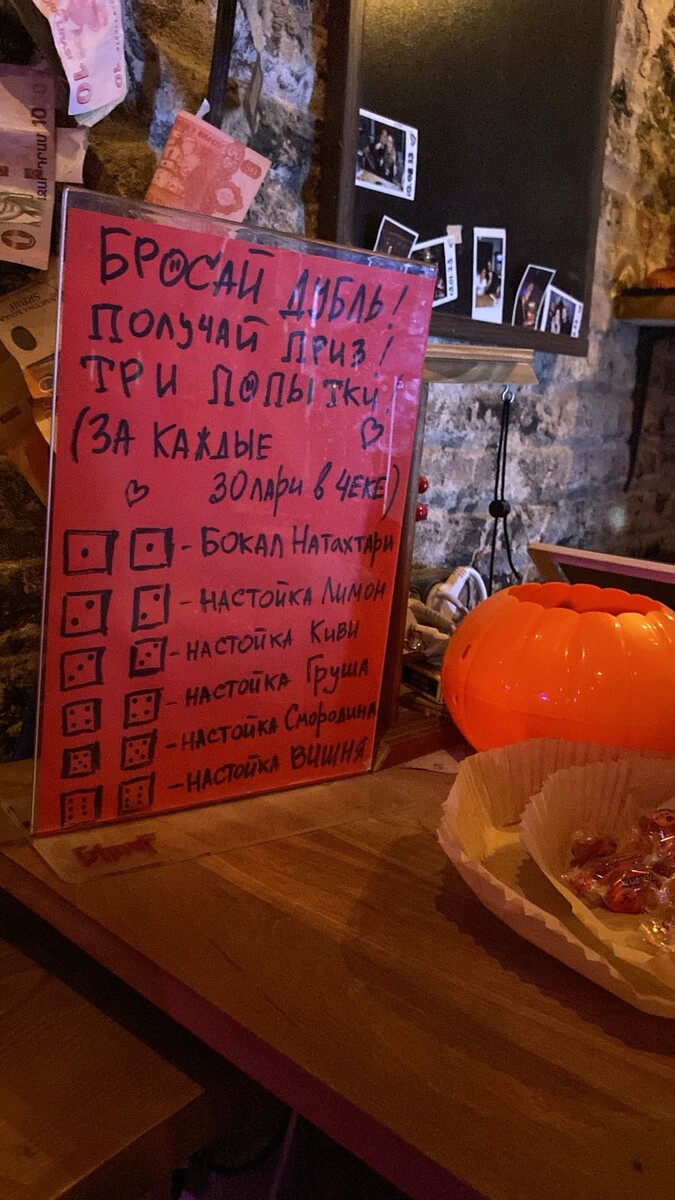 БРОСАЙ ДУБЛЬ!
ПОЛУЧАЙ ПРИЗ!
ТРИ ПОПЫТКИ!
(ЗА КАЖДЫЕ
30 лари в ЧЕКЕ)
- БОКАЛ НАТАХТАРИ
- НАСТОЙКА ЛИМОН
- НАСТОЙКА КИВИ
- НАСТОЙКА ГРУША
- НАСТОЙКА Смородина
- НАСТОЙКА ВИШНЯ
10
10